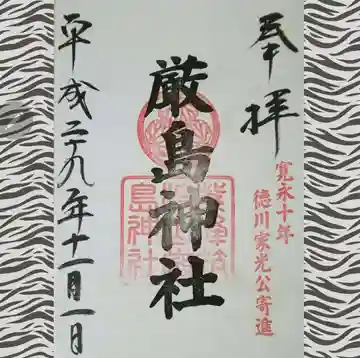 奉拝
寛永十年
徳川家光公寄進
厳島神社
平成二九年十一月一日